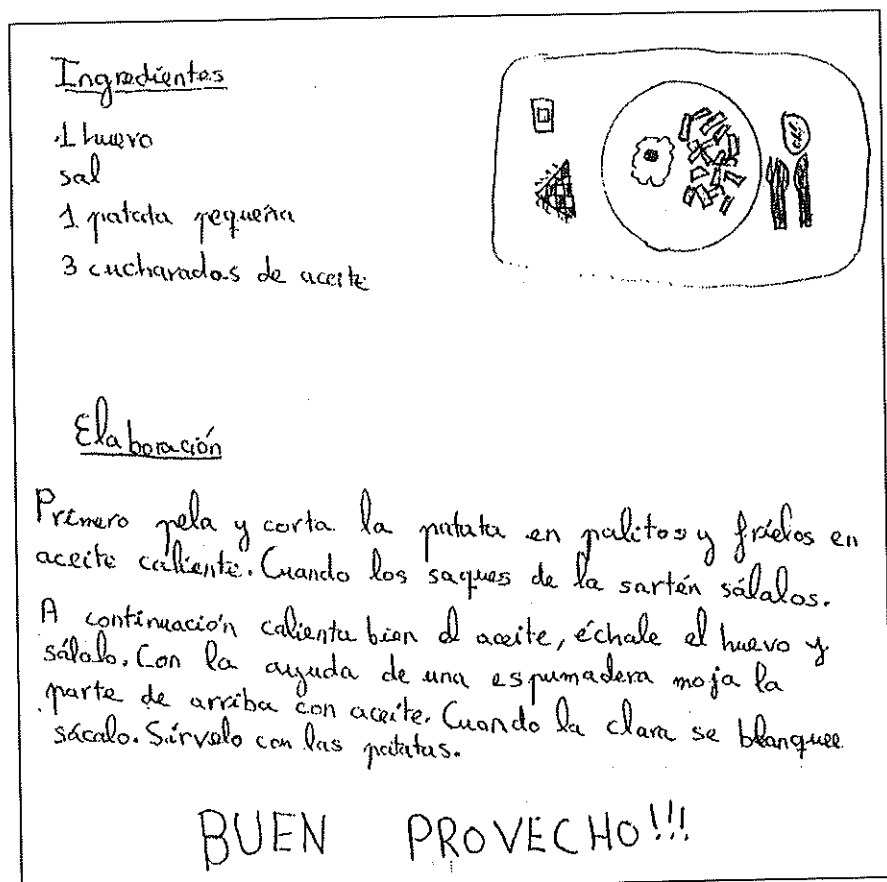 Ingredientes
1 huevo
sal
1 patata pequeña
3 cucharadas de aceite
Elaboración
Primero pela y corta la patata en palitos y fríelos en
aceite caliente. Cuando los saques de la sartén sálalos.
A continuación calienta bien el aceite, échale el huevo y
sálalo. Con la ayuda de una espumadera moja la
parte de arriba con aceite. Cuando la clara se blanquee
sácalo. Sírvelo con las patatas.
BUEN PROVECHO!!!